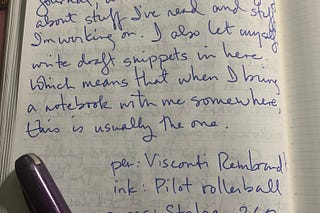 journal,
about stuff I've read and stuff
I'm working on. I also let myself
write draft snippets in here.
Which means that when I bring
a notebook with me somewhere,
this is usually the one.
pen: Visconti Rembrandt
ink: Pilot rollerball